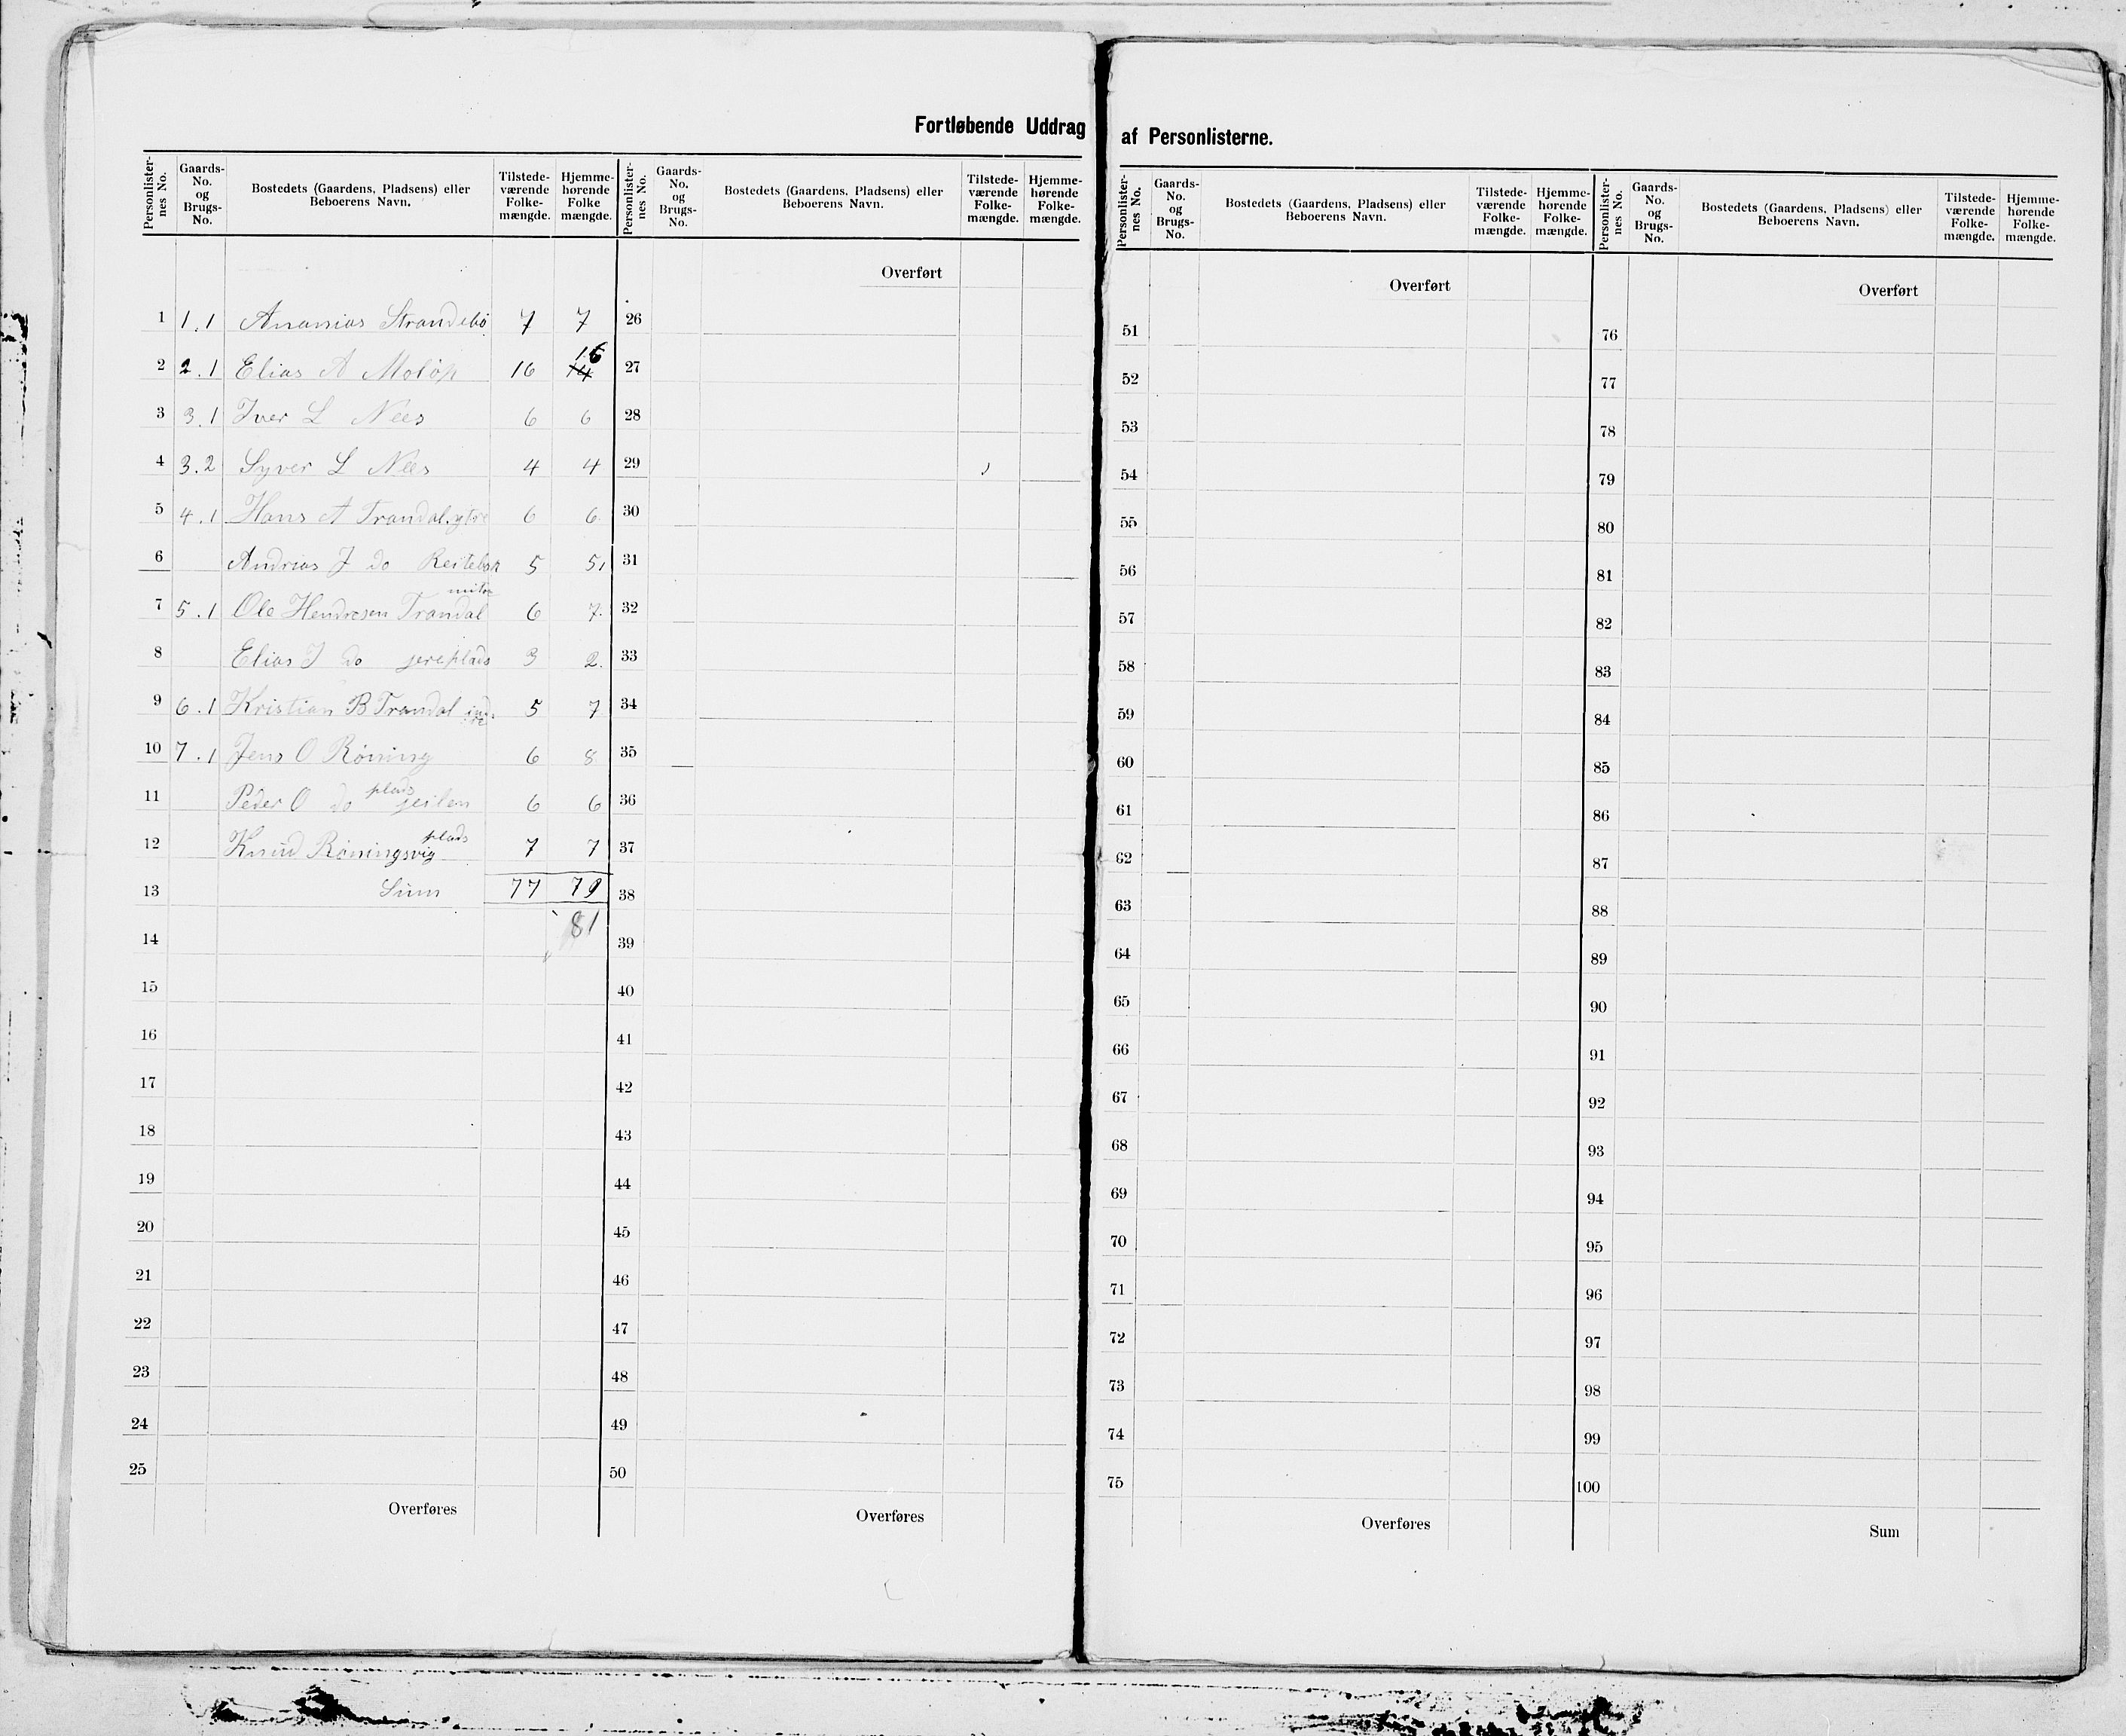 Fortløbende Uddrag af Personlisterne.
Personlister-nes No. Gaards-No. og Brugs-No. Bostedets (Gaardens, Pladsens) eller Beboerens Navn. Tilstede-værende Folke-mængde. Hjemme-hørende Folke mængde.
1 1.1 Ananias Strandebø 7 7
2 2.1 Elias A 16 14 16
3 3.1 Iver L Nees 6 6
4 3.2 Syver L Nees 4 4
5 4.1 Hans A Trandal. ytre 6 6
6 Andrias J do 5 5
7 5.1 Ole Hendresen Trandal 6 7
8 Elias J do 3 2
9 6.1 Kristian B Trandal indre 5 7
10 7.1 Jens O Röning 6 8
11 Peder O do plads 6 6
12 Knud Röningsvig plads 7 7
13 Sum 77 79
81
14
15
16
17
18
19
20
21
22
23
24
25
Overføres
Personlister-nes No. Gaards-No. og Brugs-No. Bostedets (Gaardens, Pladsens) eller Beboerens Navn. Tilstede-værende Folke-mængde. Hjemme-hørende Folke-mængde.
Overført
26
27
28
29
30
31
32
33
34
35
36
37
38
39
40
41
42
43
44
45
46
47
48
49
50
Overføres
Personlister-nes No. Gaards-No. og Brugs-No. Bostedets (Gaardens, Pladsens) eller Beboerens Navn. Tilstede-værende Folke-mængde. Hjemme-hørende Folke-mængde.
Overført
51
52
53
54
55
56
57
58
59
60
61
62
63
64
65
66
67
68
69
70
71
72
73
74
75
Overføres
Personlister-nes No. Gaards-No. og Brugs-No. Bostedets (Gaardens, Pladsens) eller Beboerens Navn. Tilstede-værende Folke-mængde. Hjemme-hørende Folke-mængde.
Overført
76
77
78
79
80
81
82
83
84
85
86
87
88
89
90
91
92
93
94
95
96
97
98
99
100
Sum